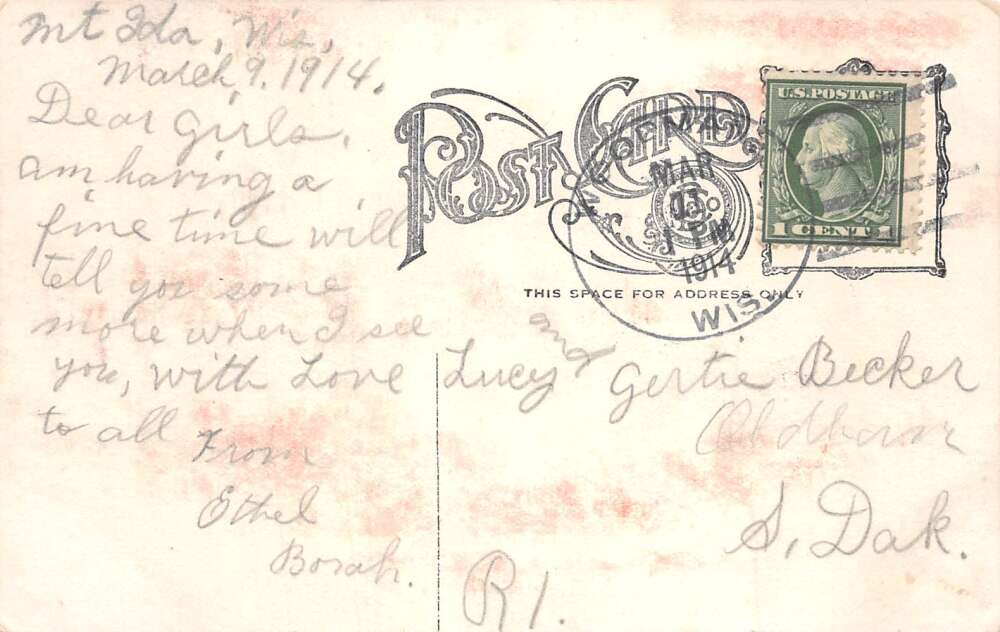 Mt Ida, Wis,
March, 9. 1914.
Dear girls,
am having a
fine time will
tell you some
more when I see
you, with Love
to all
From
Ethel
Borah.
POST CARD
U.S. POSTAGE
1 CENT 1
MAR
13
1914
WIS.
THIS SPACE FOR ADDRESS ONLY
Lucy and Gertie Becker
Oldham
S, Dak.
R1.